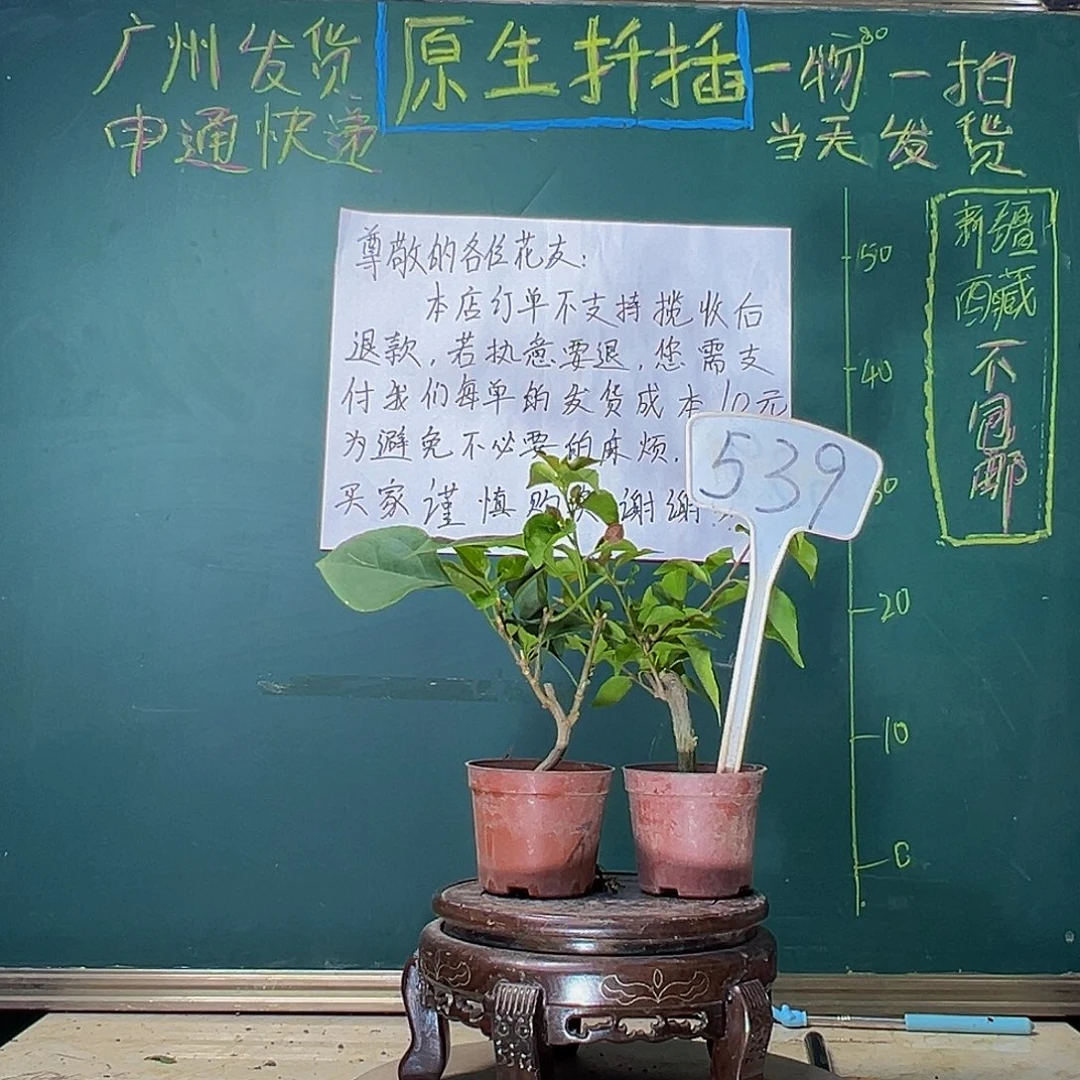 广州发货
申通快递
原生扦插
一物一拍
当天发货
80
尊敬的各位花友:
本店订单不支持揽收后
退款,若执意要退,您需支
付我们每单的发货成本10元
为避免不必要的麻烦,
买家谨慎购买 谢谢
539
50
40
30
20
10
0
新疆
西藏
不
包
邮